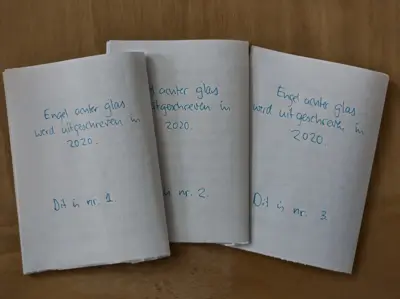 Engel achter glas
werd uitgeschreven in
2020.
Dit is nr. 1.
achter glas
uitgeschreven in
2020.
is nr. 2.
Engel achter glas
werd uitgeschreven in
2020.
Dit is nr. 3